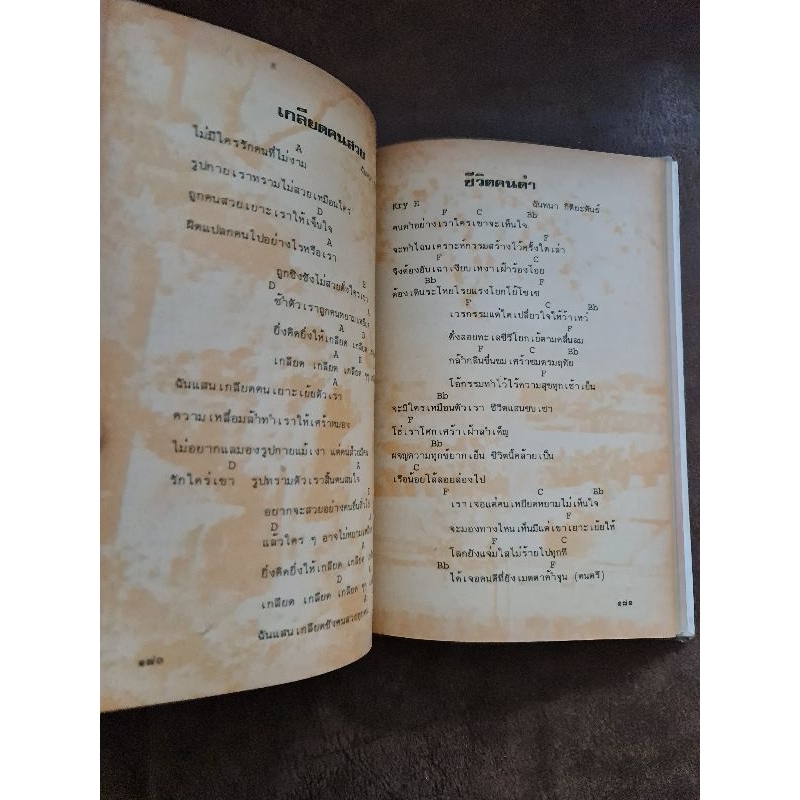 เกลียดคนสวย
A
ไม่มีใครรักคนที่ไม่งาม
รูปกายเราทรามไม่สวยเหมือนใคร
D
ถูกคนสวยเยาะเราให้เจ็บใจ
A
ผิดแปลกคนไปอย่างไรหรือเรา
E
ถูกชิงชังไม่สวยดั่งใครเขา
D A
ซ้ำตัวเราถูกคนหยาม
A D
ยิ่งคิดยิ่งให้เกลียด เกลียด
A E
เกลียด เกลียด เกลียด
A
ฉันแสนเกลียดคนเยาะเย้ยตัวเรา
ความเหลื่อมล้ำทำเราให้เศร้าหมอง
ไม่อยากแลมองรูปกายแม้เงา
D A
รักใคร่เขา รูปทรามตัวเราสิ้นคนสนใจ
E
อยากจะสวยอย่างคนอื่น
D A
แล้วใคร ๆ อาจไม่หยาม
A
ยิ่งคิดยิ่งให้เกลียด เกลียด
D A
เกลียด เกลียด เกลียด
A
ฉันแสนเกลียดชังคนสวย
๑๘๐
ชีวิตคนดำ
Kry E ฉันทนา กิติยะพันธ์
F C Bb
คนดำอย่างเราใครเขาจะเห็นใจ
F
จะทำไฉนเคราะห์กรรมสร้างไว้ครั้งใดเล่า
F C
จึงต้องอับเฉาเงียบเหงาเฝ้าร้องโอย
Bb F
ต้องเดินระโหยโรยแรงโยกไย้โซเซ
F C Bb
เวรกรรมแต่ใดเปลี่ยวใจให้ว้าเหว่
F
ดั่งลอยทะเลซีรีโยกเย้ตามคลื่นลม
F C Bb
กล้ำกลืนขื่นขมเศร้าขมตรมฤทัย
F
โอ้กรรมทำไว้ไร้ความสุขทุกเช้าเย็น
Bb
จะมีใครเหมือนตัวเรา ชีวิตแสนซบเซา
F
โธ่เราโศกเศร้าเฝ้าลำเค็ญ
Bb
ผจญความทุกข์ยากเย็น ชีวิตนี้คล้ายเป็น
C
เรือน้อยไล้ลอยล่องไป
F C Bb
เราเจอแต่คนเหยียดหยามไม่เห็นใจ
F
จะมองทางไหนเห็นมีแต่เขาเยาะเย้ยให้
F C
โลกยังแจ่มใสไม่ร้ายไปทุกที
Bb F
ได้เจอคนดีที่ยังเมตตาค้ำจุน (ดนตรี)
๑๘๑